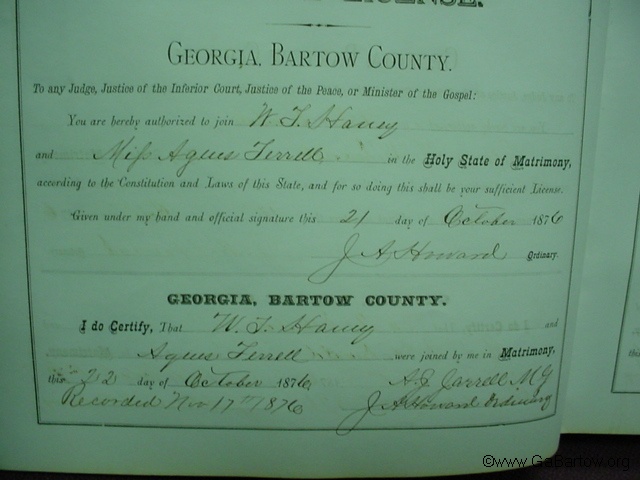 LICENSE.
GEORGIA, BARTOW COUNTY.
To any Judge, Justice of the Inferior Court, Justice of the Peace, or Minister of the Gospel:
You are hereby authorized to join W. T. Haney
and Miss Agnes Terrell in the Holy State of Matrimony,
according to the Constitution and Laws of this State, and for so doing this shall be your sufficient License.
Given under my hand and official signature this 21 day of October 1876
J A Howard Ordinary.
GEORGIA, BARTOW COUNTY.
I do Certify, That W. T. Haney and
Agnes Terrell were joined by me in Matrimony,
this 22 day of October 1876 A. J. Jarrell M G
Recorded Nov 17th 1876 J A Howard Ordinary
©www.GaBartow.org